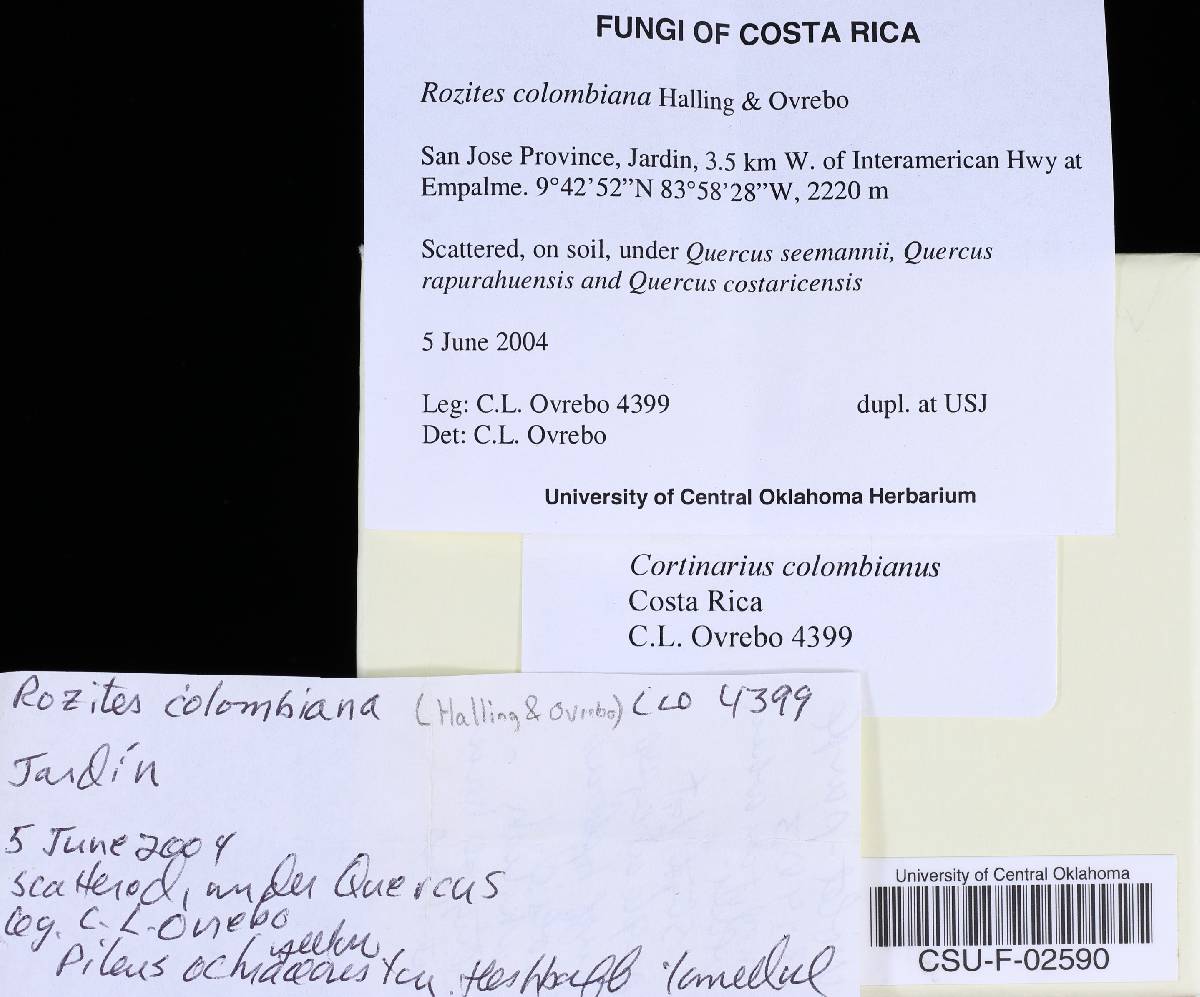 FUNGI OF COSTA RICA
Rozites colombiana Halling & Ovrebo
San Jose Province, Jardin, 3.5 km W. of Interamerican Hwy at
Empalme. 9°42’52”N 83°58’28”W, 2220 m
Scattered, on soil, under Quercus seemannii, Quercus
rapurahuensis and Quercus costaricensis
5 June 2004
Leg: C.L. Ovrebo 4399 dupl. at USJ
Det: C.L. Ovrebo
University of Central Oklahoma Herbarium
Cortinarius colombianus
Costa Rica
C.L. Ovrebo 4399
Rozites colombiana (Halling & Ovrebo) CLO 4399
Jardín
5 June 2004
scattered, under Quercus
leg. C. L. Ovrebo
Pileus
University of Central Oklahoma
CSU-F-02590